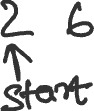 2 6
start